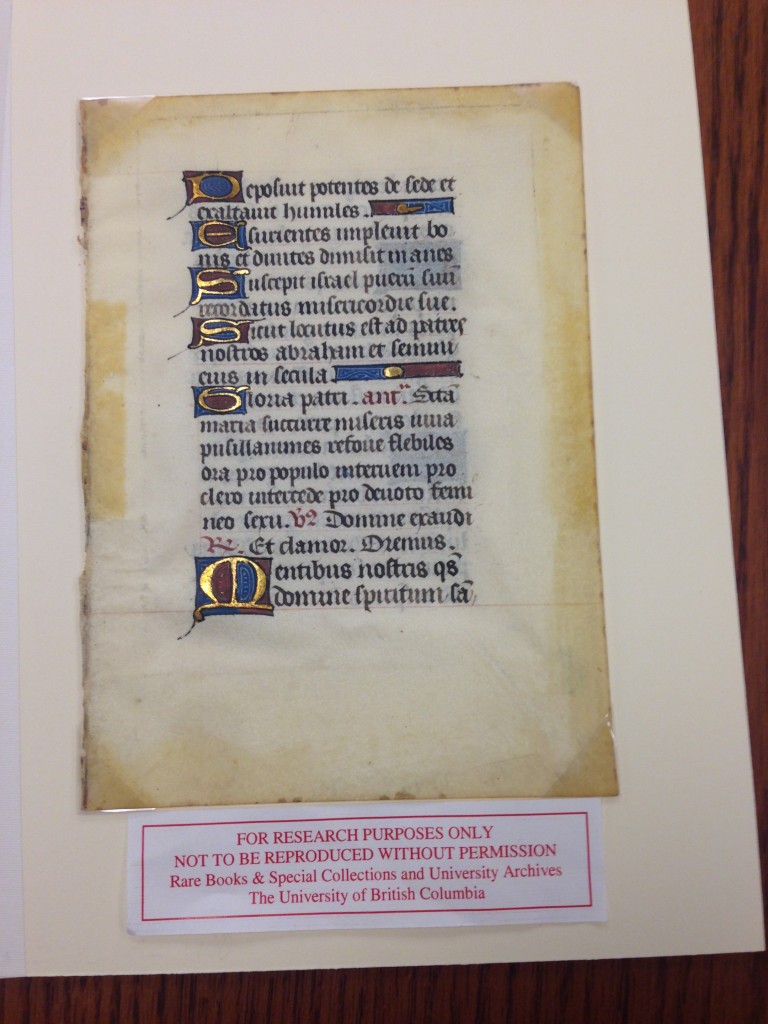 Deposuit potentes de sede et
exaltavit humiles.
Esurientes implevit bo
nis et divites dimisit inanes
Suscepit israel puerū suū
recordatus misericordie sue.
Sicut locutus est ad patres
nostros abraham et semini
eius in secula.
Gloria patri. ant̄. Sctā
maria succurre miseris iuva
pusillanimes refove flebiles
ora pro populo interveni pro
clero intercede pro devoto femi
neo sexu. V̄ Domine exaudi
R. Et clamor. Oremus.
Mentibus nostris qs̄
domine spiritum sā
FOR RESEARCH PURPOSES ONLY
NOT TO BE REPRODUCED WITHOUT PERMISSION
Rare Books & Special Collections and University Archives
The University of British Columbia